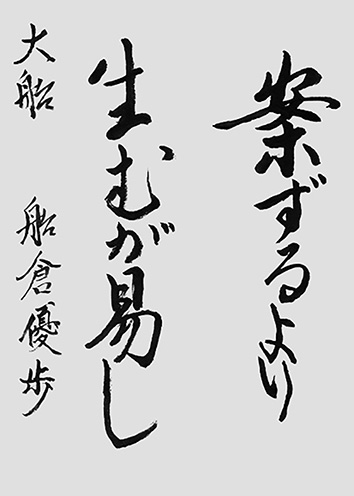 案ずるより
生むが易し
大船 船倉優歩